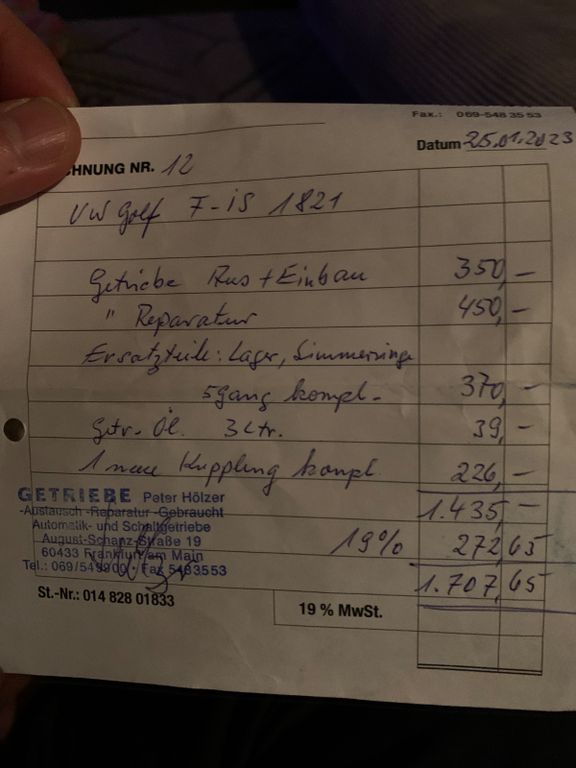 Fax.: 069-548 35 53
Datum 25.01.2023
HNUNG NR. 12
VW Golf F-iS 1821
Getriebe Aus + Einbau 350,-
" Reparatur 450,-
Ersatzteile: Lager, Simmerringe
5gang kompl. 370,-
Getr. Öl. 3 Ltr. 39,-
1 neue Kupplung kompl. 226,-
1.435,-
19% 272,65
1.707,65
GETRIEBE Peter Hölzer
-Austausch -Reparatur -Gebraucht
Automatik- und Schaltgetriebe
August-Schanz-Straße 19
60433 Frankfurt am Main
Fax 5483553
St.-Nr.: 014 828 01833
19 % MwSt.